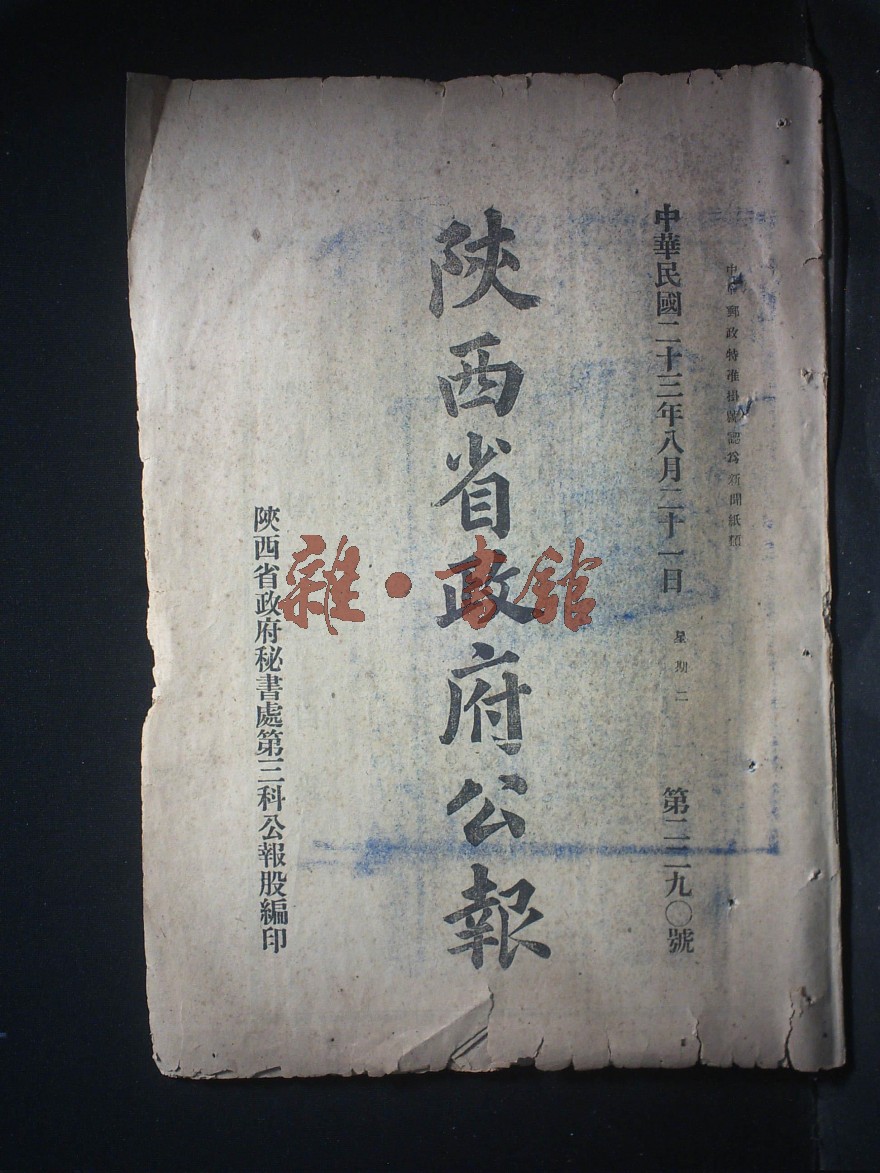 中華郵政特准掛號認爲新聞紙類
中華民國二十三年八月二十一日 星期二 第二二九〇號
陝西省政府公報
陝西省政府秘書處第三科公報股編印
雜·書館